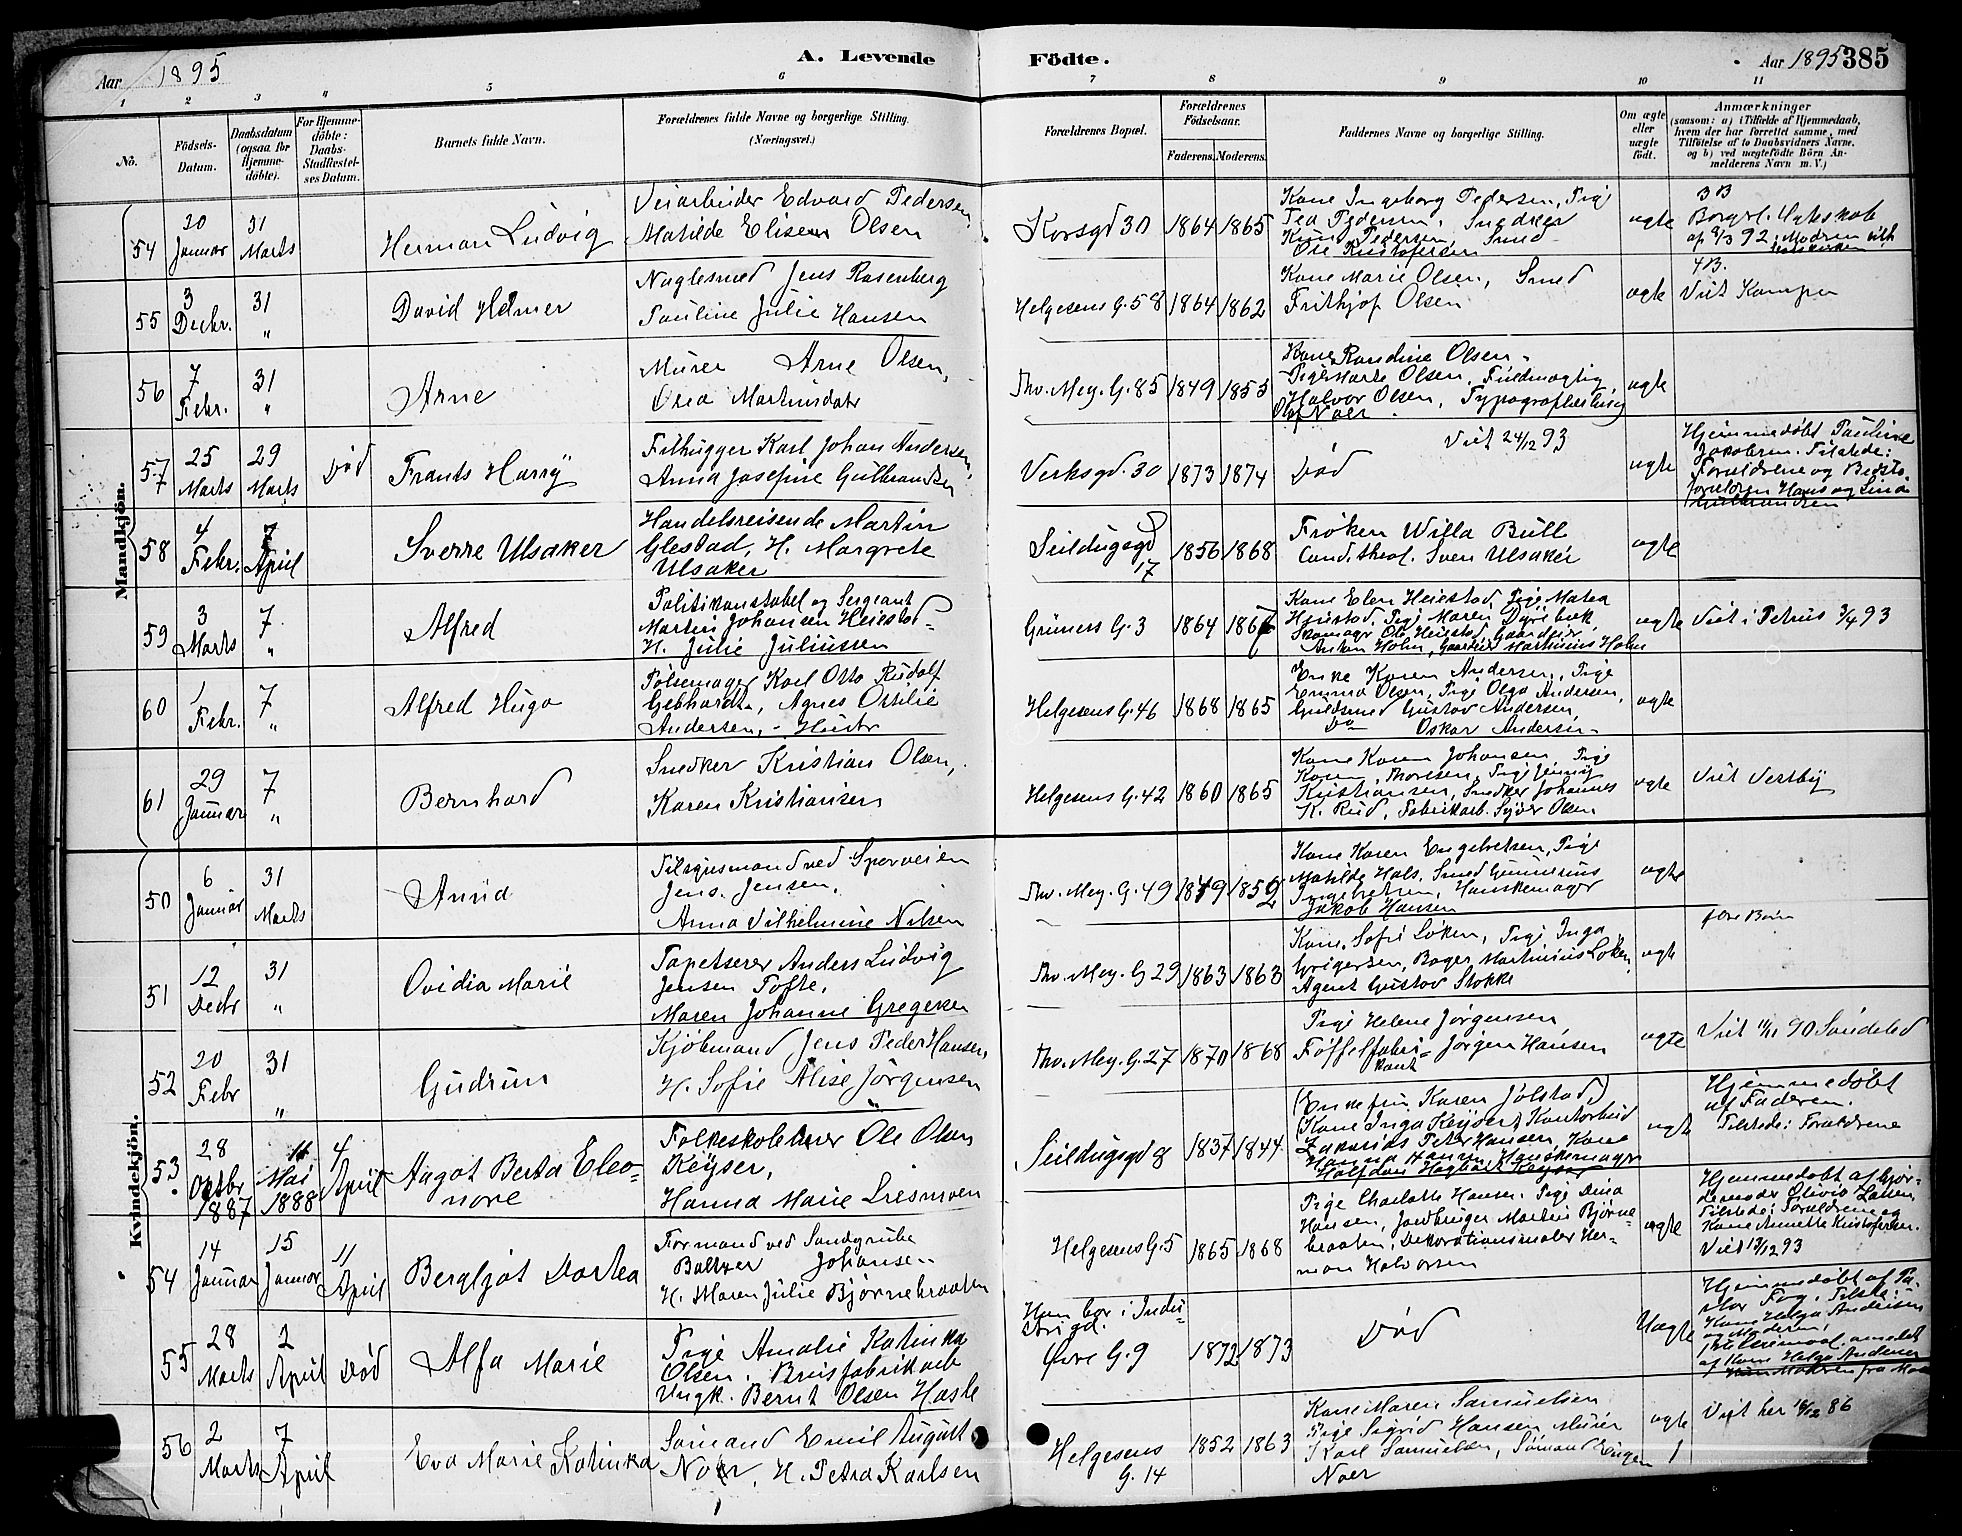 Aar 1895
A. Levende
Födte.
Aar 1895 385
1 2 3 4 5 6 7 8 9 10 11
No.
Födsels-Datum.
Daabsdatum (ogsaa for Hjemme-döbte).
For Hjemme-döbte: Daabs-Stadfestel-ses Datum.
Barnets fulde Navn.
Forældrenes fulde Navne og borgerlige Stilling. (Næringsvei.)
Forældrenes Bopæl.
Forældrenes Födselsaar.
Faderens. Moderens.
Faddernes Navne og borgerlige Stilling.
Om ægte eller uægte födt.
Anmærkninger
(saasom: a) i Tilfælde af Hjemmedaab,
hvem der har forrettet samme, med
Tilföielse af to Daabsvidners Navne.
og b) ved uægtefödte Börn An-
melderens Navn m. V.)
Mandkjön.
54
30 Januar
31 Marts
Herman Ludvig
Veiarbeider Edvard Pedersen
Matilde Elisen Olsen
Korsgd 30
1864
1865
Kone Ingeborg Pedersen, Pige
Pedersen, Snedker
Pedersen, Smed
Ole Kristofersen
ægte
3 B
Borgerl. Ægteskab
55
3 Decbr.
31 "
David Helmer
Naglesmed Jens Rosenberg
Pauline Julie Hansen
Helgesens G. 58
1864
1862
Kone Marie Olsen, Smed
Frithjof Olsen
ægte
4 B.
Viet Kampen
56
7 Febr.
31 "
Arne
Murer Arne Olsen,
Martinsdatr
Thv. Mey. G. 85
1849
1855
Kone Randine Olsen
Pige Marte Olsen, Fuldmægtig
Halvor Olsen, Typograflærling
Olaf Noer
ægte
57
25 Marts
29 Marts
Död
Frants Harry
Filhugger Karl Johan Andersen,
Anna Josefine Gulbrandsen
Verksgd. 30
1873
1874
Viet 24/12 93
Död
ægte
Hjemmedøbt Pauline
Jakobsen. Tilstede:
Forældrene og Bedste-
forældren Hans og Lina
Gulbrandsen
58
4 Febr.
7 April
Sverre Ulsaker
Handelsreisende Martin
Glestad, H. Margrete
Ulsaker
Seildugsgd 17
1856
1868
Frøken Willa Bull
Cand. theol. Sven Ulsaker
ægte
59
3 Marts
7 "
Alfred
Politikonstabel og Sergeant
Martin Johansen Heiestad
H. Julie Juliussen
Grüners G. 3
1864
1867
Kone Elen Heiestad, Pige Matea
Heiestad, Pige Maren Dyrebæk,
Skomagr Ole Heiestad, Gaardeier
Anton Holm, Gaardeier Martinius Holm
ægte
Viet i Petrus 3/4 93
60
1 Febr.
7 "
Alfred Hugo
Pølsemager Karl Otto Rudolf
Gebhardt, Agnes Ottilie
Andersen, - Hustr
Helgesens G. 46
1868
1865
Enke Karen Andersen, Pige
Emma Olsen, Pige Olga Andersen,
Guldsmed Gustav Andersen,
Do Oskar Andersen
ægte
61
29 Januar
7 "
Bernhard
Snedker Kristian Olsen,
Karen Kristiansen
Helgesens G. 42
1860
1865
Kone Karen Johansen, Pige
Karen Thoresen, Pige Jenny
Kristiansen, Snedker Johannes
K. Rud, Fabrikarb. Syver Olsen
ægte
Viet Vestby
Kvindekjön.
50
6 Januar
31 Marts
Anna
Tilsynsmand ved Sporveien
Jens Jensen,
Anna Vilhelmine Nilsen
Thv. Mey. G. 49
1849
1852
Kone Karen Engebretsen, Pige
Matilde Hals, Smed Gunnerius
Engebretsen, Hanskemager
Jakob Hansen
ægte
51
12 Decbr
31 "
Ovidia Marie
Tapetserer Anders Ludvig
Jensen Tofte,
Maren Johanne Gregersen
Thv. Mey. G 29
1863
1863
Kone Sofie Løken, Pige Inga
Grigersen, Bager Martinius Løken,
Agent Gustav Stokke
ægt
flere Børn
52
20 Febr
31 "
Gudrun
Kjøbmand Jens Peder Hansen,
H. Sofie Alise Jörgensen
Thv. Mey. G. 27
1870
1868
Pige Helene Jørgensen
Tøffelfabri-kant Jørgen Hansen
ægte
Viet 11/11 90. Søndeled
53.
28 Octbr 1887
11 Mai 1888
4 April
Aagot Berta Eleo-
nore
Folkeskolelærer Ole Olsen
Keyser,
Hanna Marie Liesmoen
Seildugsgd 8
1837
1844
(Enkefru Karen Jølstad)
(Kone Inga Keyser) Kontorbud
Zakarias Peter Hansen, Kone
Hanna Hansen, Hanskemager
Halfdan Hagbart Keyser
ægt
Hjemmedøbt
af Faderen.
Tilstede: Forældrene
54
14 Januar
15 Januar
11 April
Bergljot Dortea
Formand ved Sandgrube
Baltzer Johansen
H. Maren Julie Bjørnebraaten
Helgesens G. 5
1865
1868
Pige Charlotte Hansen, Pige Dina
Hansen, Jordbruger Martin Bjørne-
braaten, Dekorationsmaler Her-
man Halvorsen
ægte
Hjemmedøbt af Gjor-
demoder Olivia Larsen,
Tilstede: Forældrene og
Kone Annette Kristofersen.
Viet 17/12 93
55
28 Marts
2 April
Död
Alfa Marie
Pige Amalie Katinka
Olsen, Brusfabrikarb
Ungk. Bernt Olsen Hasle
Han bor i Indu-
strigd.
Øvre G. 9
1872
1873
Död
Uægte
Hjemmedøbt af Pa-
stor Tilste:
Kone Helga Andersen
og Moderen,
anmeldt
af Kone Helga Andersen
56
2 Marts
7 April
Eva Marie Katinka
Sømand Emil August
Noer, H. Petra Karlsen
Helgesens G. 14
1852
1863
Kone Maren Samuelsen
Pige Sigrid Hansen, Murer
Karl Samuelsen, Sømand Eugen
Noer
ægte
Viet her 16/12 86